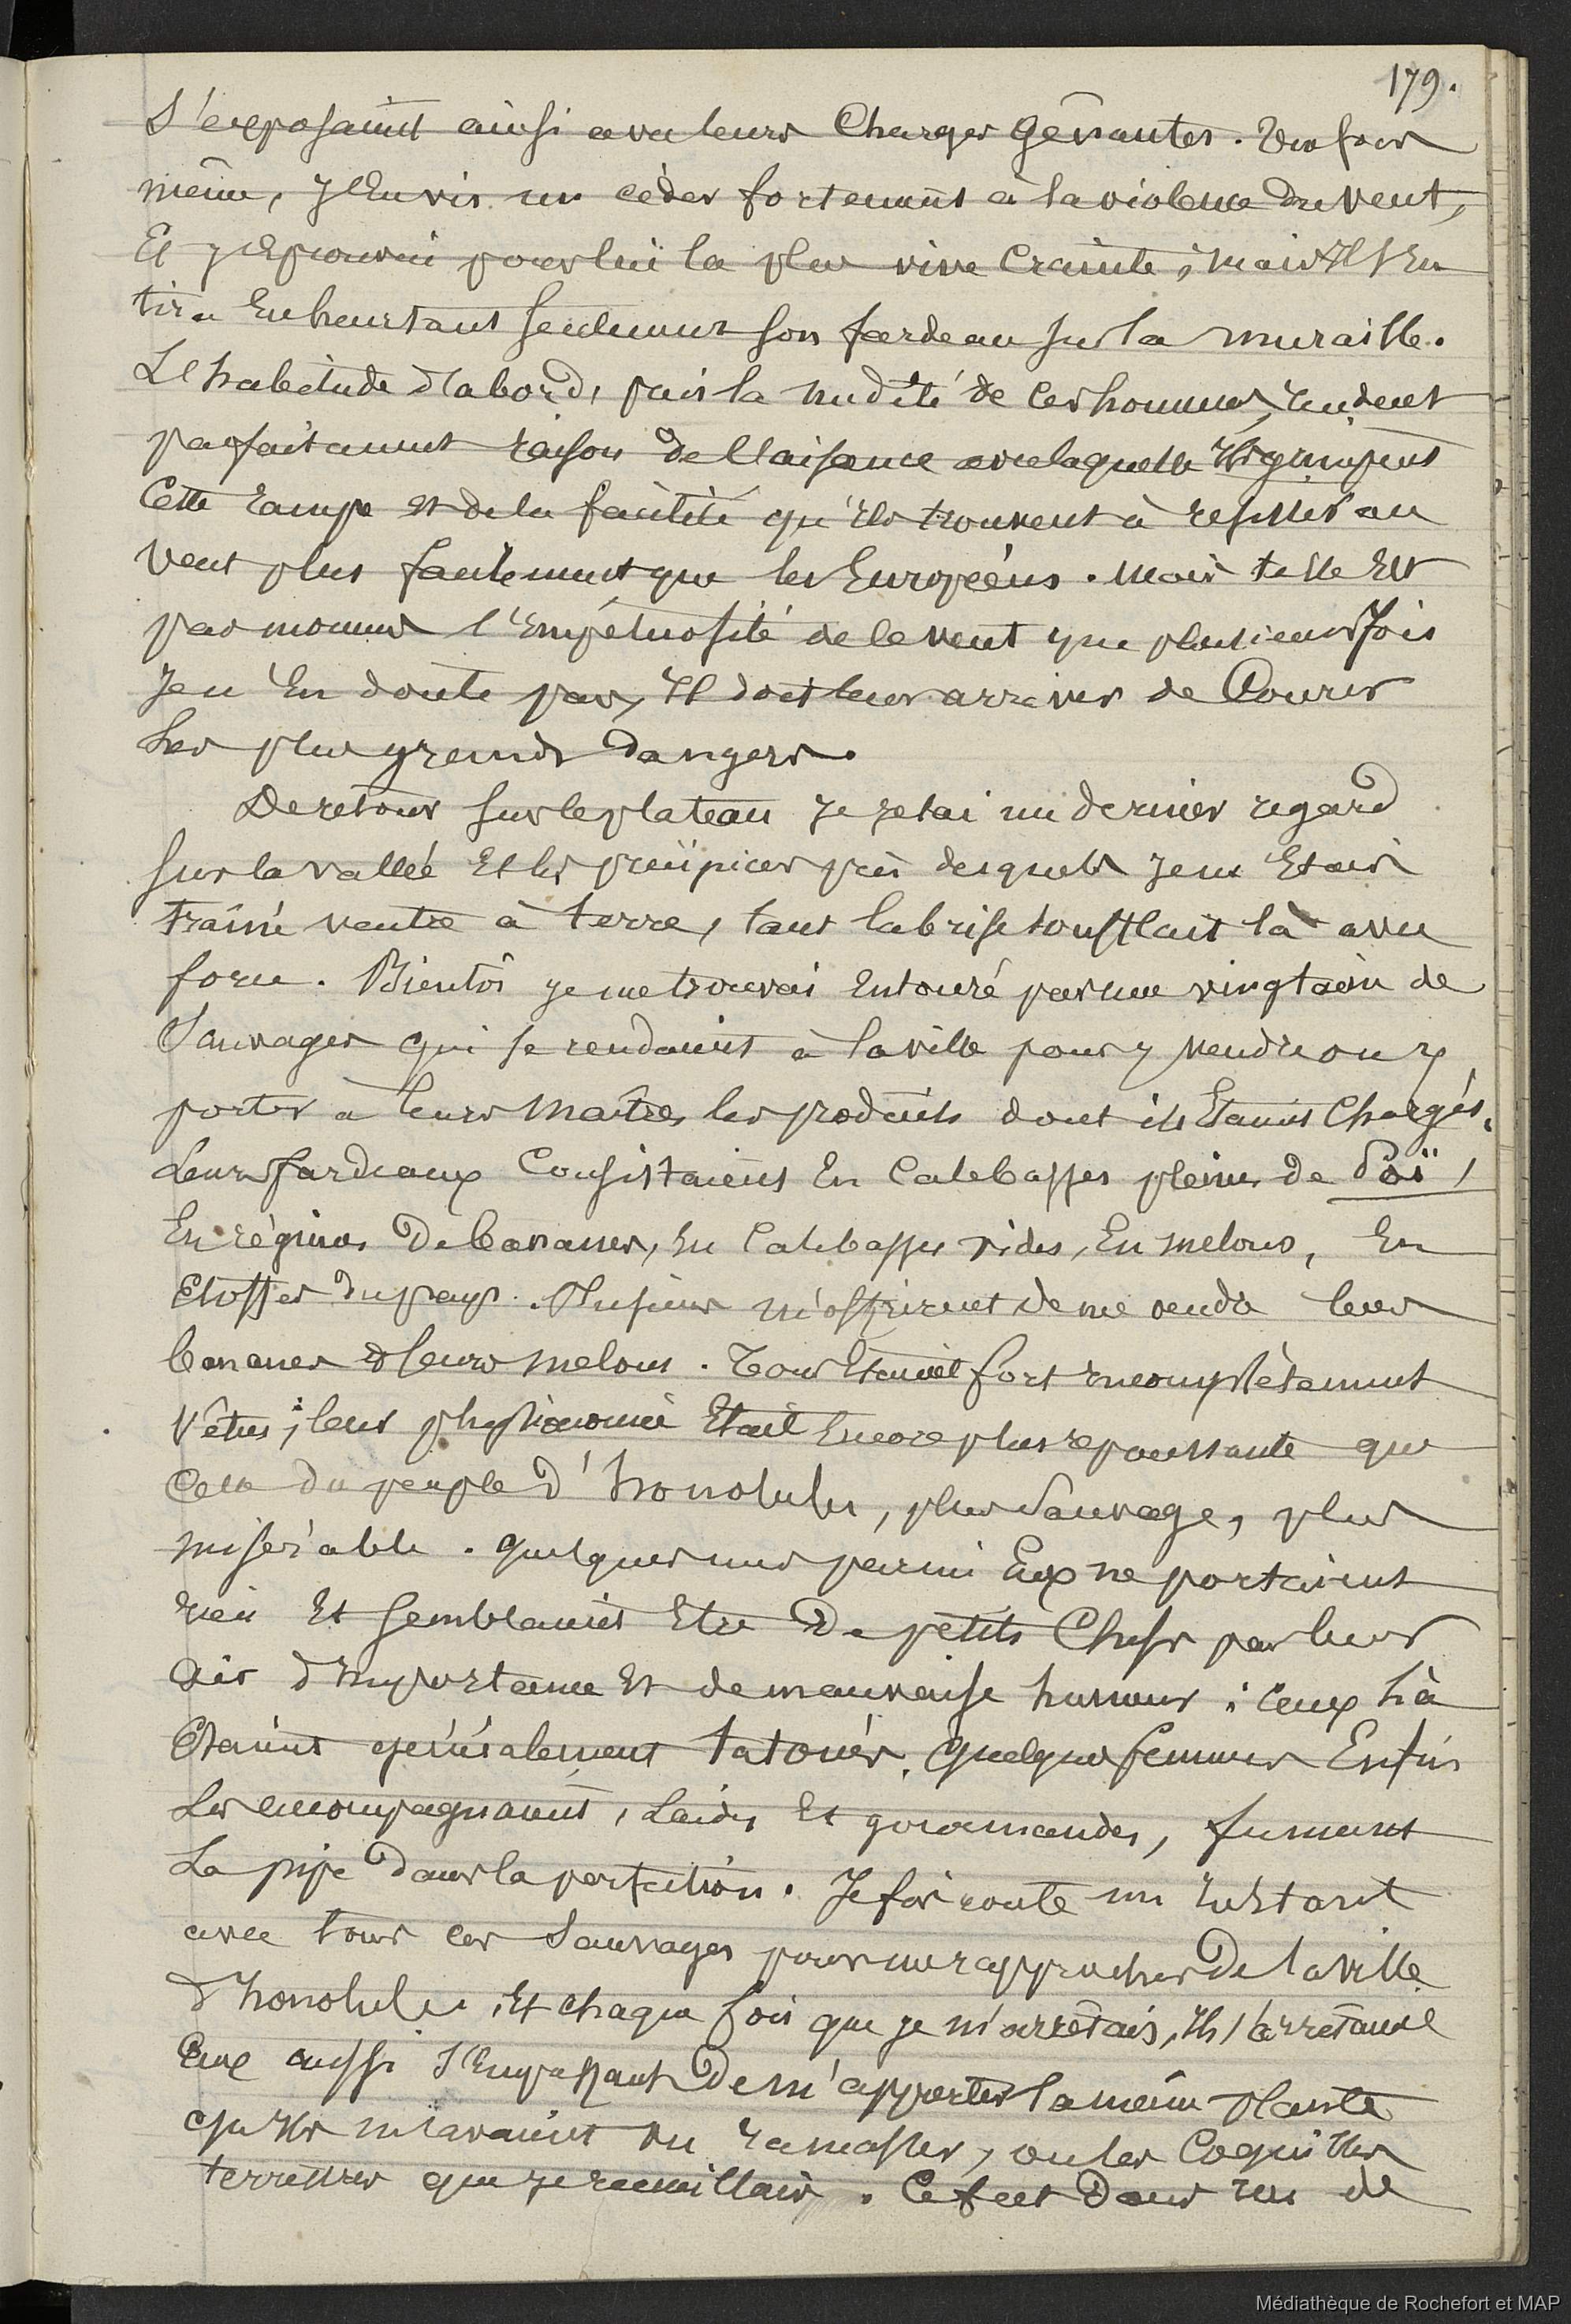 179.
S'exposaient ainsi avec leurs Charges gênantes. Une fois
même, J'En vis un céder fortement à la violence du vent,
Et j'Eprouvai pour lui la plus vive Crainte; mais Il s'En
tira En heurtant seulement son fardeau sur la muraille.
L'habitude d'abord, puis la nudité de ces hommes, rendent
parfaitement raison de l'aisance avec laquelle Ils grimpent
Cette rampe et de la facilité qu'Ils trouvent à résister au
vent plus facilement que les Européens. Mais telle Est
par moments l'Impétuosité de ce vent que plusieurs fois
Je n'En doute pas, Il doit leur arriver de Courir
les plus grands dangers.
De retour sur le plateau je jetai un dernier regard
sur la vallée Et les précipices près desquels je me Etais
traîné ventre à terre, tant la brise soufflait là avec
force. Bientôt je me trouvai Entouré par une vingtaine de
Sauvages qui se rendaient à la ville pour y vendre ou y
porter à leurs Maîtres les produits dont ils Etaient Chargés.
Leurs fardeaux Consistaient En Calebasses pleines de Poï,
En régimes De bananes, En Calebasses vides, En melons, En
Etoffes du pays. Plusieurs m'offrirent de me vendre leurs
bananes et leurs melons. Tous Etaient fort incomplètement
Vêtus; leur physionomie Etait Encore plus repoussante que
Celle du peuple d'honolulu, plus Sauvage, plus
misérable. Quelques uns parmi Eux ne portaient
rien Et semblaient Etre De petits Chefs par leur
air d'Importance Et de mauvaise humeur; ceux là
Etaient généralement tatoués. Quelques femmes Enfin
Les accompagnaient, Laides Et gourmandes, fumant
La pipe Dans la perfection. Je fis route un Instant
avec tous ces Sauvages pour me rapprocher De la ville
d'honolulu, Et chaque fois que je m'arrêtais, Ils s'arrêtaient
Eux aussi s'Empressant De m'apporter la même plante
qu'Ils m'avaient vu ramasser, ou les Coquilles
terrestres que je recueillais. Ce fut Dans un de